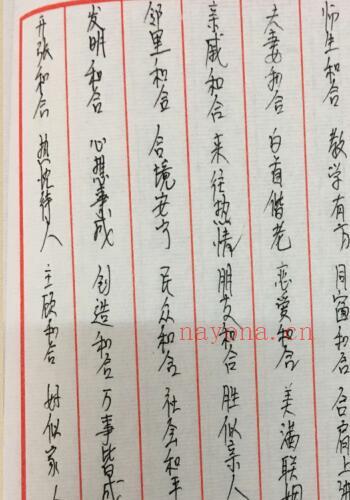 师生和合 教学有方 同窗和合 肩上
夫妻和合 白首偕老 恋爱和合 美满联姻
亲戚和合 来往热情 朋友和合 胜似亲人
邻里和合 合境安宁 民众和合 社会和平
发明和合 心想事成 创造和合 万事皆成
开张和合 热忱待人 主顾和合 好似家人
nayona.cn